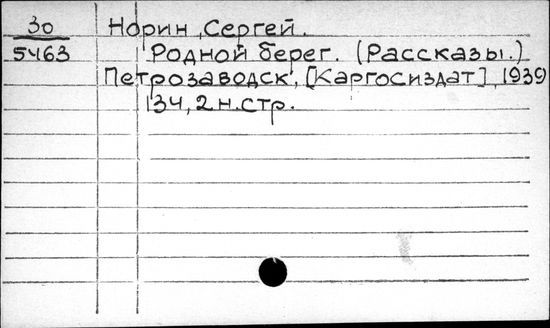 30 Норин, Сергей.
5463 Родной берег. (Рассказы.)
Петрозаводск, [Каргосиздат], 1939
134, 2 н.стр.